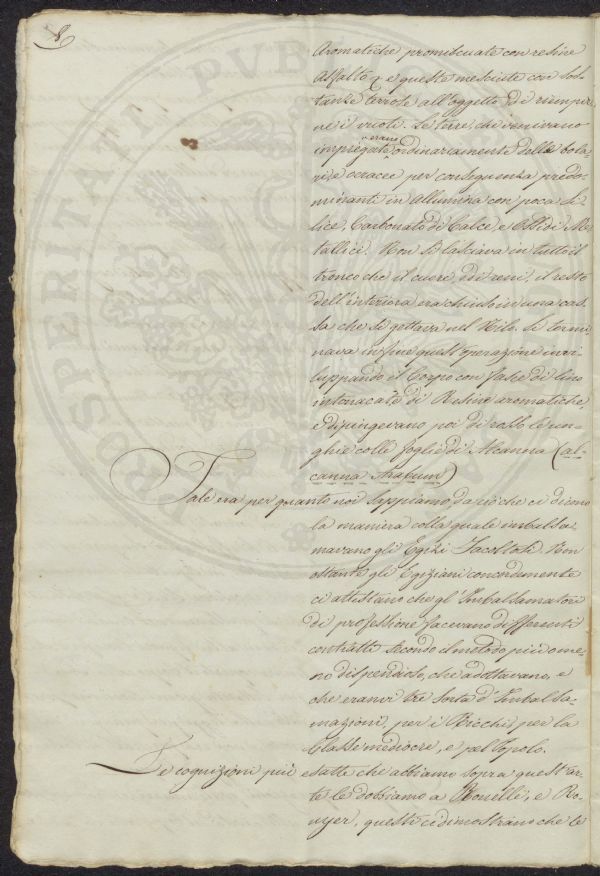 8
Aromatiche promiscuate con resine
Asfalto &, e queste mesciute con sos-
tanze terrose all'oggetto di riempi-
re i vuoti. Le terre, che venivano
impiegate, erano ordinariamente delle bola-
ri, e ocracee per conseguenza predo-
minanti in Allumina con poca Si-
lice, Carbonato di Calce, e Ossidi Me-
tallici. Non si lasciava in tutto il
tronco che il cuore, ed i reni, il resto
dell'interiora era chiuso in una cas-
sa che si gettava nel Nilo. Si termi-
nava in fine quest'operazione invi-
luppando il Corpo con fasce di lino
intonacate di Resine aromatiche,
e dipingevano poi di rosso le un-
ghie colle foglie di Alcanna (al-
canna Arabum)
Tale era per quanto noi sappiamo, da ciò che ci dicono
la maniera colla quale imbalsa-
mavano gli Egizi Facoltosi. Non
ostante gli Egiziani concordemente
ci attestano che gl'Imbalsamatori
di professione facevano differenti
contratti secondo il metodo più o me-
no dispendioso, che adottavano, e
che eranvi tre sorta d'Imbalsa-
mazioni, per i Ricchi, per la
Classe mediocre, e pel Popolo.
Le cognizioni più esatte che abbiamo sopra quest'ar-
te le dobbiamo a Rouelle, e Ro-
uyer, questi ci dimostrano che le
PROSPERITATI PUBL